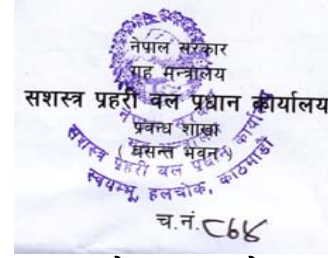 नेपाल सरकार
गृह मन्त्रालय
सशस्त्र प्रहरी बल प्रधान कार्यालय
प्रबन्ध शाखा
( बसन्त भवन )
स्वयम्भू, हलचोक, काठमाडौं
च.नं. ८६४